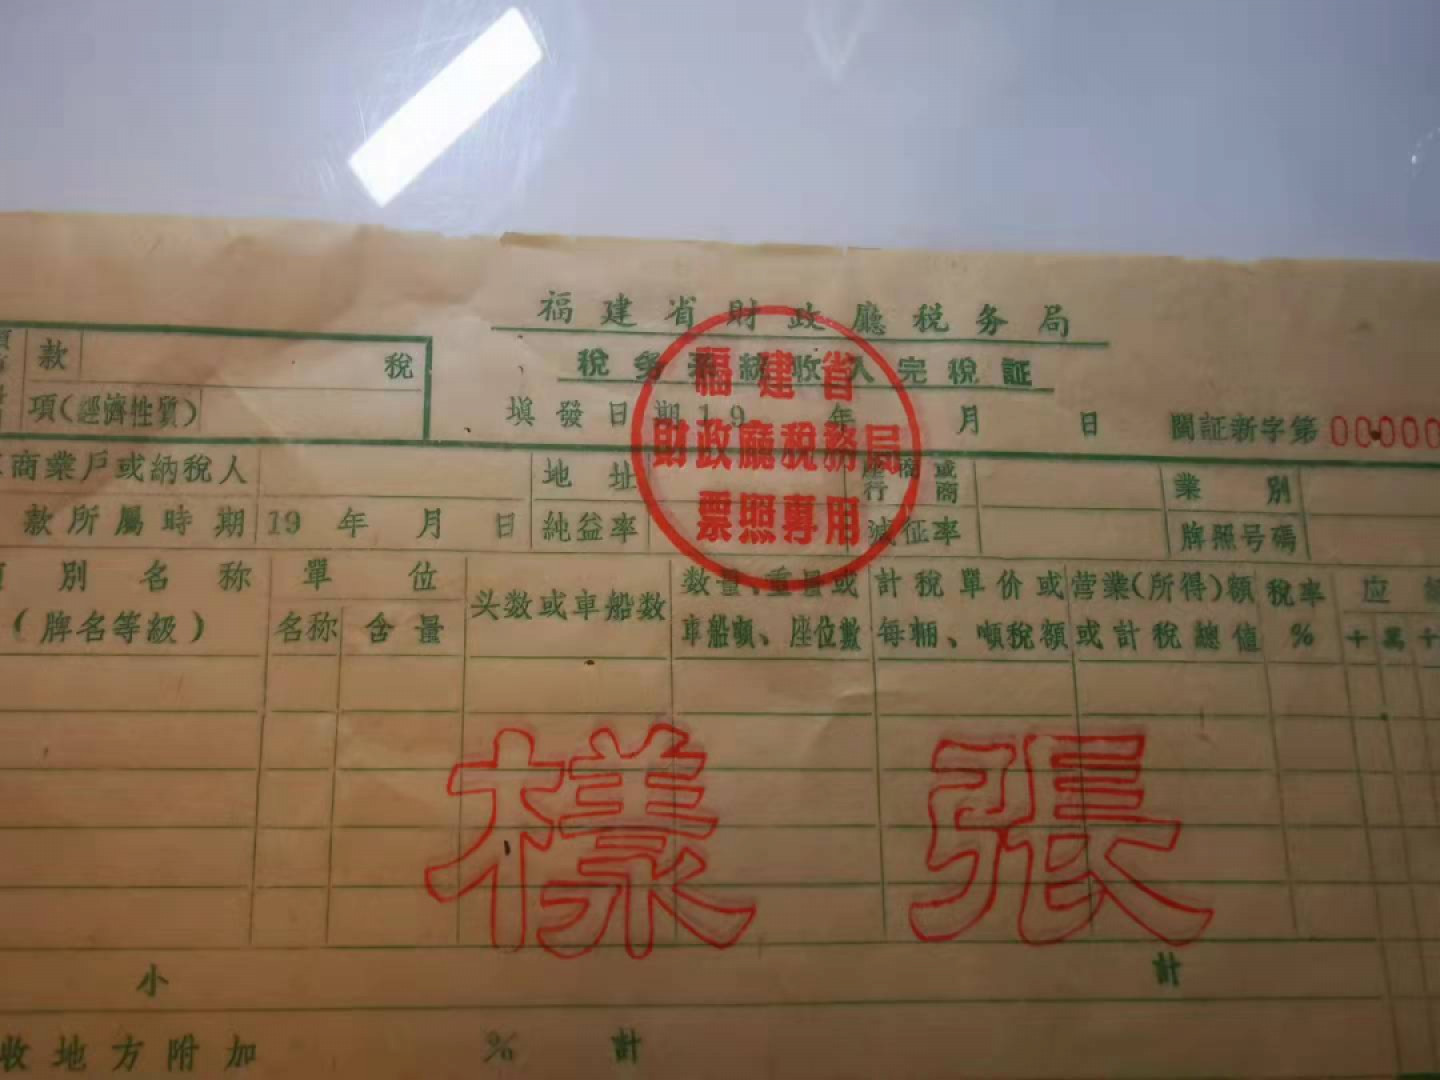 福建省財政廳税务局
税务系統收入完税証
款 税
項(經濟性質)
填發日期19 年 月 日
閩証新字第 00000
福建省
財政廳税務局
票照專用
商業戶或納税人
地址
商或
行商
業別
款所屬時期 19 年 月 日
純益率
减征率
牌照号碼
別名称
(牌名等級)
單位
名称
含量
头数或車船数
数量、重量或
車船噸、座位數
計税單价或
每輛、噸税額
营業(所得)額
或計税總值
税率
%
应
十 萬 千
樣張
小 計
收地方附加 % 計